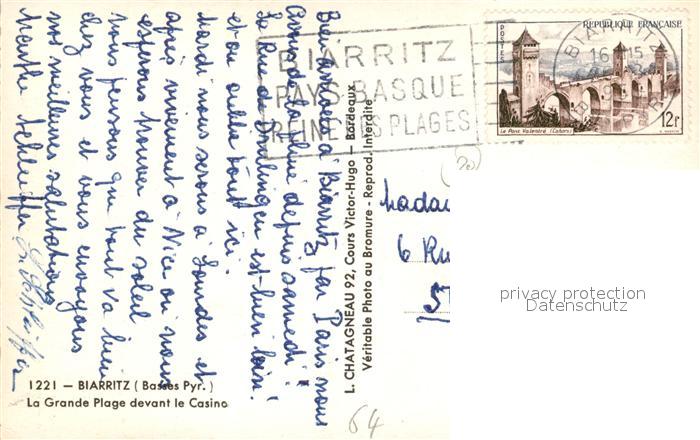 Bien arrivées à Biarritz par Paris nous
avons de la pluie depuis samedi!
La Rue de Dindlingen est bien loin!
et on oublie tout ici.
Mardi nous serons à Lourdes et
après viviement à Nice où nous
espérons trouver du soleil
nous pensons que tout va bien
chez vous et vous envoyons
nos meilleures salutations
Menthe Schleiffer
BIARRITZ
PAYS BASQUE
REINE DES PLAGES
REPUBLIQUE FRANÇAISE
POSTES
Le Pont Valentré (Cahors)
12F
BIARRITZ
16 15
L. CHATAGNEAU 92, Cours Victor-Hugo — Bordeaux
Véritable Photo au Bromure - Reprod. Interdite
Mada
6 Ru
5
privacy protection
Datenschutz
1221 — BIARRITZ (Basses Pyr.)
La Grande Plage devant le Casino
64